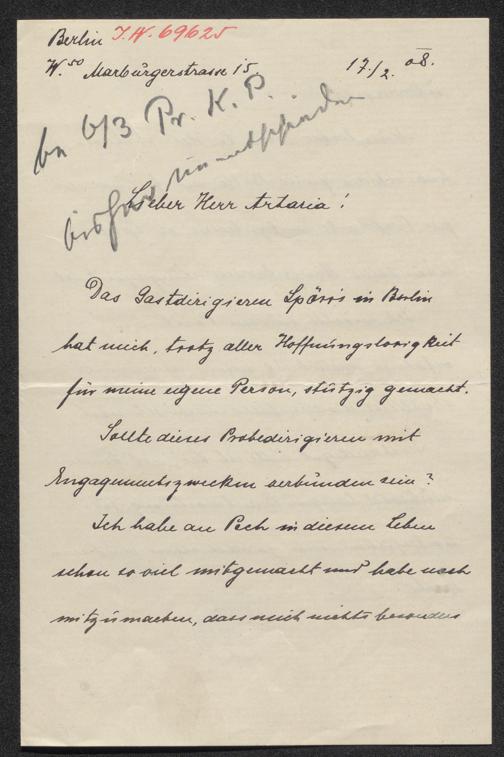 Berlin I.N. 69625
W. 50 Marburgerstrasse 15 17./2. 08.
6/3 Pr. K. P.
bisher unentschieden
Lieber Herr Artaria!
Das Gastdirigieren Spörr's in Berlin
hat mich, trotz aller Hoffnungslosigkeit
für meine eigene Person, stutzig gemacht.
Sollte dieses Probedirigieren mit
Engagementszwecken verbunden sein?
Ich habe an Pech in diesem Leben
schon so viel mitgemacht und habe noch
mitzumachen, dass mich nichts besonders